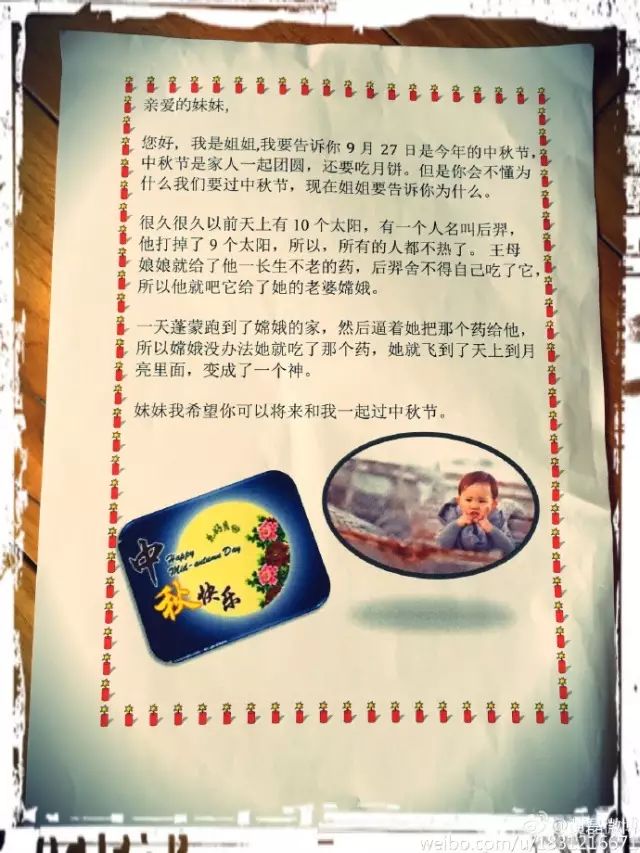 亲爱的妹妹,
您好，我是姐姐,我要告诉你 9 月 27 日是今年的中秋节,
中秋节是家人一起团圆，还要吃月饼。但是你会不懂为
什么我们要过中秋节，现在姐姐要告诉你为什么。
很久很久以前天上有 10 个太阳，有一个人名叫后羿，
他打掉了 9 个太阳，所以，所有的人都不热了。王母
娘娘就给了他一长生不老的药，后羿舍不得自己吃了它，
所以他就吧它给了她的老婆嫦娥。
一天蓬蒙跑到了嫦娥的家，然后逼着她把那个药给他，
所以嫦娥没办法她就吃了那个药，她就飞到了天上到月
亮里面，变成了一个神。
妹妹我希望你可以将来和我一起过中秋节。
中
Happy
Mid-autumn Day
秋快乐
weibo.com/u/